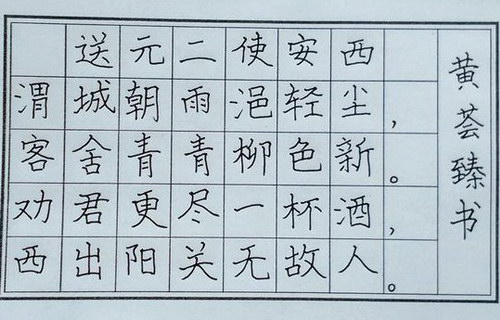 送元二使安西
渭城朝雨浥轻尘，
客舍青青柳色新。
劝君更尽一杯酒，
西出阳关无故人。
黄荟臻书